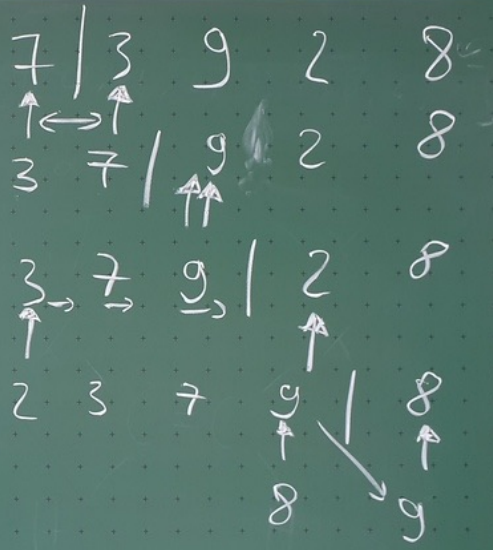 7 | 3 9 2 8
3 7 | 9 2 8
3 7 9 | 2 8
2 3 7 9 | 8
8 9